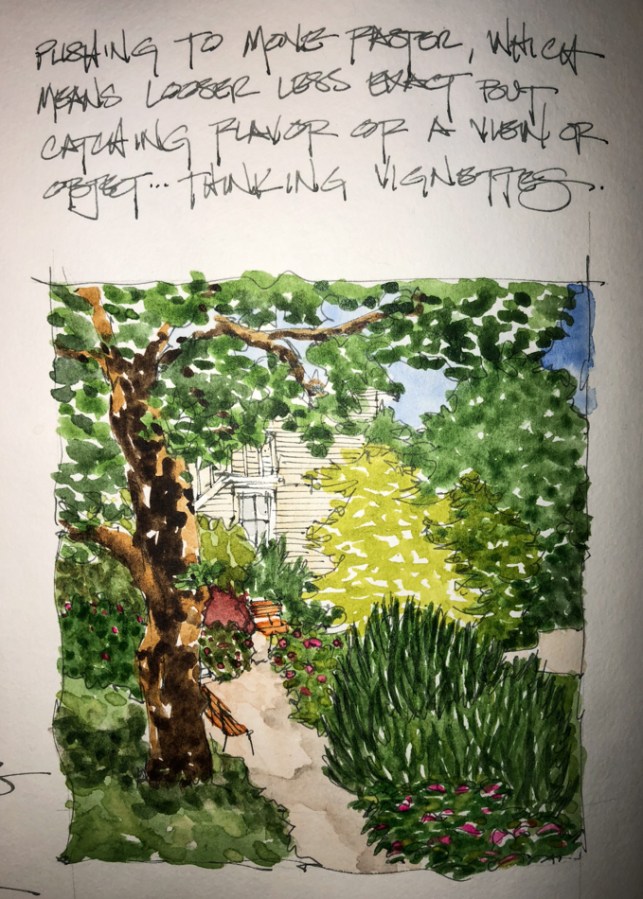 PUSHING TO MOVE FASTER, WHICH
MEANS LOOSER LESS EXACT BUT
CATCHING FLAVOR OF A VIEW OR
OBJECT... THINKING VIGNETTES.